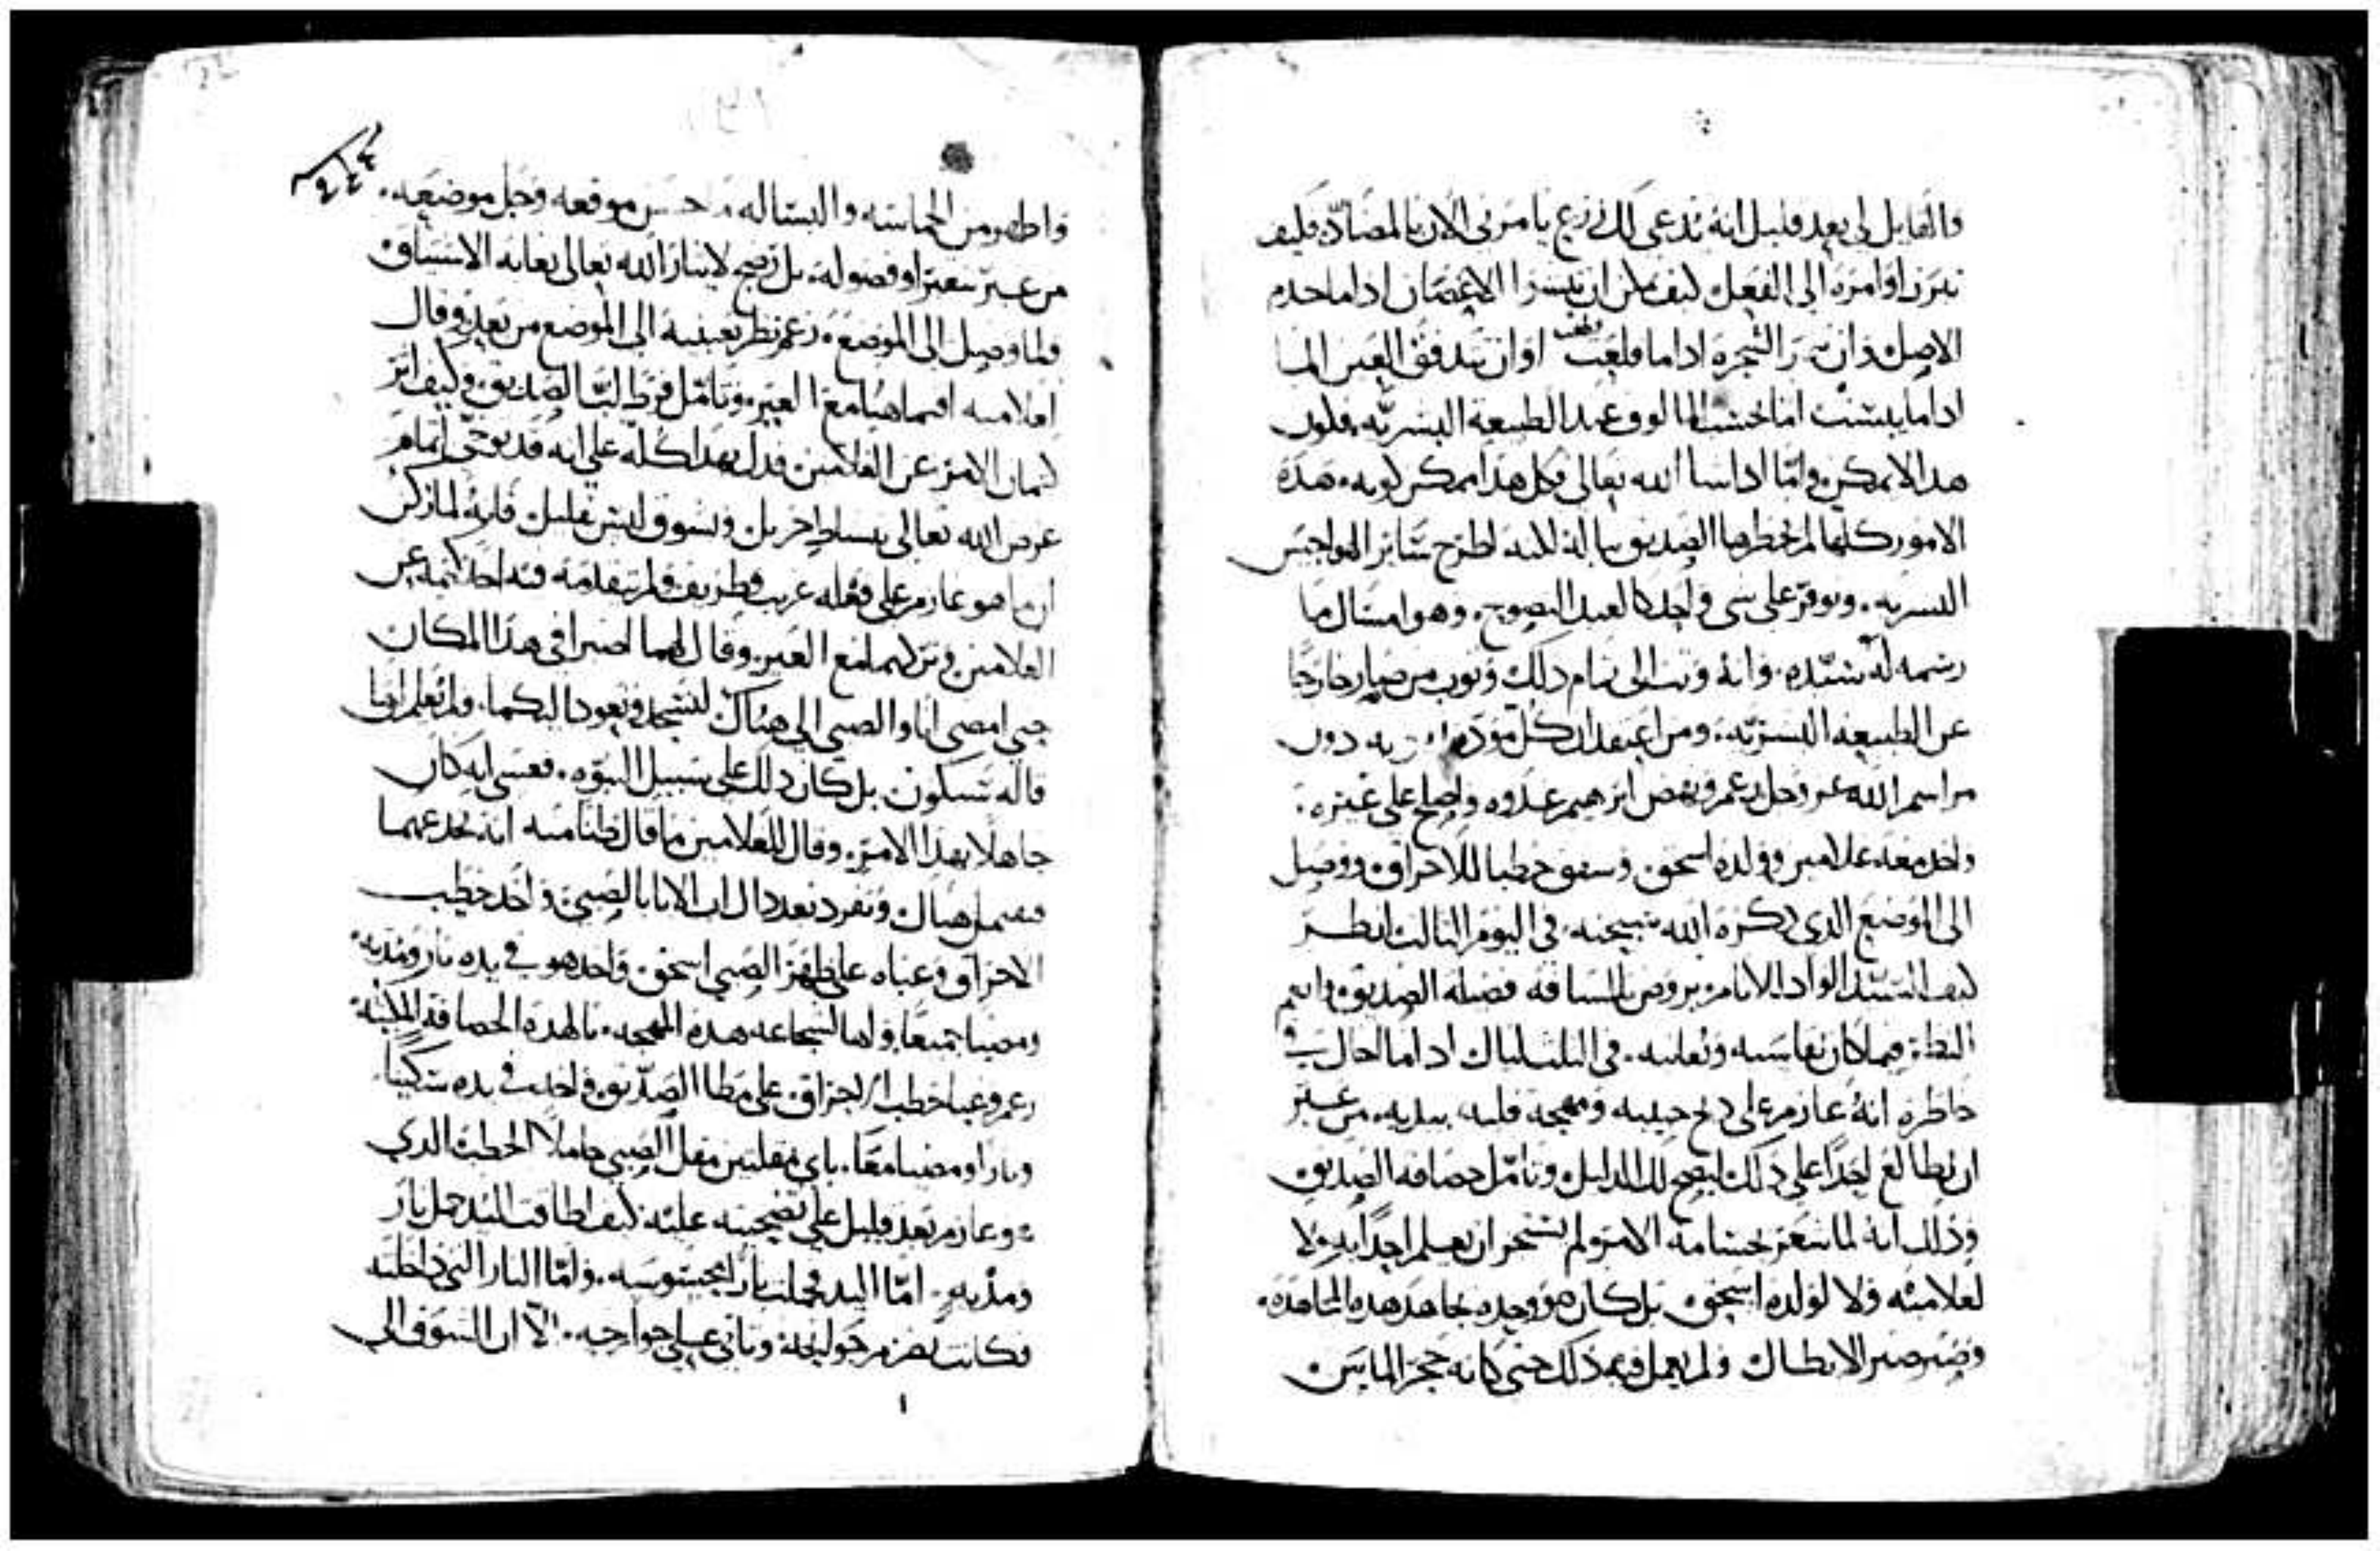 والقايل لي بعد قليل انه يدعى لك زرع يامرني الان بالمضاد فكيف
اوامره الى الفعل كيف يمكن ان الاغصان اذا ما حدم
الاصل وان الشجره اذا ما قلعت او ان تتدفق العين الما
اذا ما يبست اما بحسب المالوف عند الطبيعة البشريه فلون
هذا لا يمكن واما اذا شا الله تعالى فكل هذا ممكن كونه هذه
الامور كلها لم يخطرها الصديق بباله لكنه اطرح ساير الهواجس
البشريه وتوفر على شي واحد كالعبد النصوح وهو امتثال ما
رسمه له سيده وانه وثب الى تمام ذلك وثوب من صار خارجا
عن الطبيعه البشريه ومن اعتقد ان كل موده دون
مراسم الله عز وجل زعم ونهض ابرهيم غدوه واصلح على عيره
واخذ معه غلامين وولده اسحق وشقق حطبا للاحراق ووصل
الى الموضع الذي ذكره الله سبحنه في اليوم الثالث انظر
كيف السيد الجواد الانام بروض بالمسافه فضيلة الصديق وانعم
النظر فيما كان يقاسيه ويعانيه في الثلث ليال اذا ما اجال في
خاطره انه عازم على ذبح حبيبه ومهجة قلبه بيديه من غير
ان يطالع احدا على ذلك ليصح لك الدليل وتامل حصافه الصديق
وذلك انه لما شعر بجسامة الامر ولم يستجز ان يعلم احدا به ولا
لغلاميه ولا لولده اسحق بل كان هو وحده يجاهد هذه المجاهده
وصبر صبر الابطال ولم يهمل فيه ذلك حتى كانه حجر الماس
واظهر من الحماسه والبساله ما حسن موقعه وجل موضعه
من غير تعثر او فصوله بل نصح لايثار الله تعالى بغاية الاشتياق
ولما وصل الى الموضع زعم نظر بعينيه الى الموضع من بعد وقال
لغلاميه اقيما هنا مع العير وتامل فرط لب الصديق وكيف اثر
كتمان الامر عن الغلامين فدل بهذا كله على انه قد توخى اتمام
غرض الله تعالى بنشاط جزيل وشوق ليس بقليل فانه لما ذكر
ان ما هو عازم على فعله غريب طريف فلم يتقدمه فيه احد كتمه عن
الغلامين وتركهما مع العير وقال لهما اصبرا في هذا المكان
حتى امضي انا والصبي الى هناك لنسجد ونعود اليكما ولم يعلم ان ما
قاله سيكون بل كان ذلك على سبيل النبوه فعسى انه كان
جاهلا بهذا الامر وقال للغلامين ما قال ظنا منه انه يخدعهما
هناك وتفرد بعد ذلك الاب بالصبي واخذ حطب
الاحراق وعباه على ظهر الصبي اسحق واخذ هو في يده نار ومديه
ومضيا جميعا واها لشجاعه هذه المهجه يا لهذه الحصافة المكينه
زعم وعبا حطب الاحراق على مطا الصديق واخذ في يده سكينا
ونارا ومضيا معا باي مقلتين مقل الصبي حاملا الحطب الذي
هو عازم بعد قليل على تضحيته عليه كيف اطاقت اليد حمل نار
ومديه اما اليد فحملت نارا محسوسه واما النار التي داخله
فكانت تضرم جوانحه وتاتي على جوارحه الا ان الشوق الى